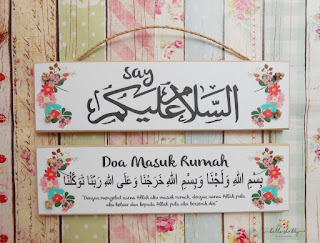 say
السلام عليكم
Doa Masuk Rumah
بِسْمِ اللهِ وَلَجْنَا وَبِسْمِ اللهِ خَرَجْنَا وَعَلَى اللهِ رَبِّنَا تَوَكَّلْنَا
"Dengan menyebut nama Allah aku masuk rumah, dengan nama Allah pula
aku keluar dan kepada Allah pula aku berserah diri"